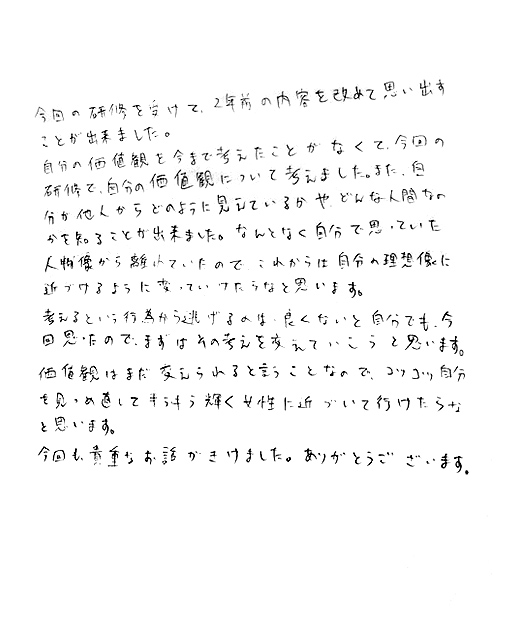 今回の研修を受けて、2年前の内容を改めて思い出す
ことが出来ました。
自分の価値観を今まで考えたことがなくて、今回の
研修で、自分の価値観について考えました。また、自
分が他人からどのように見えているかや、どんな人間なの
かを知ることが出来ました。なんとなく自分で思っていた
人物像から離れていたので、これからは自分の理想像に
近づけるように変っていけたらなと思います。
考えるという行為から逃げるのは、良くないと自分でも、今
回思ったので、まずはその考えを変えていこうと思います。
価値観はまだ変えられると言うことなので、コツコツ自分
を見つめ直してキラキラ輝く女性に近づいて行けたらな
と思います。
今回も、貴重なお話がきけました。ありがとうございます。